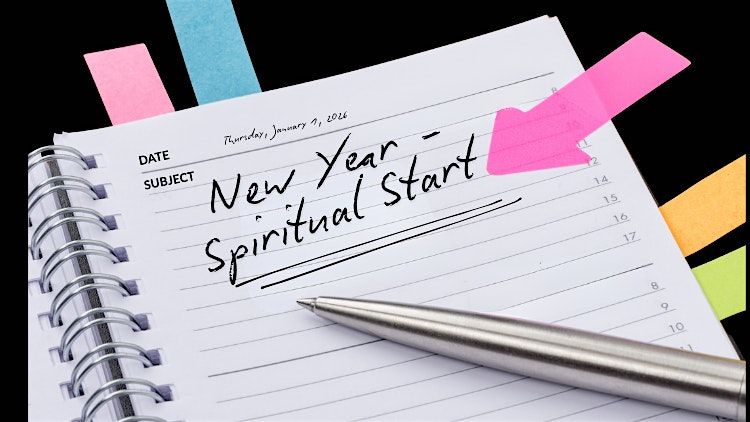 DATE Thursday, January 1, 2026
SUBJECT New Year -
Spiritual Start
8
9
10
11
12
14
15
16
17
8
9
10
11